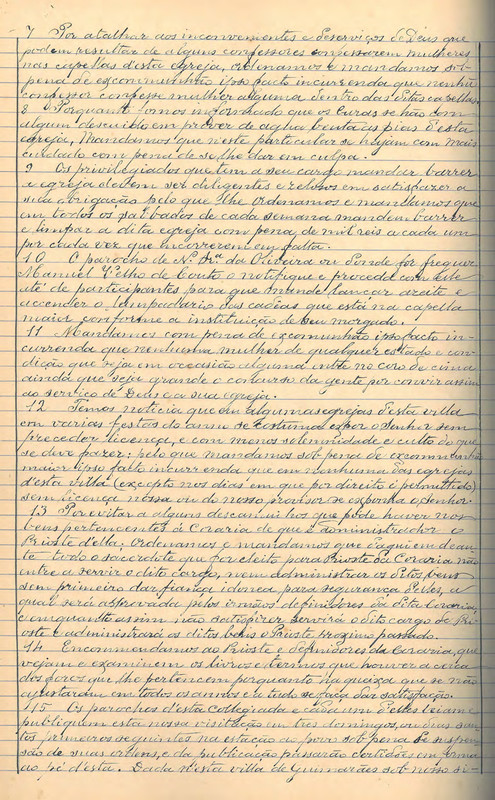 7 Por atalhar aos inconvenientes e deserviços de Deus que
podem resultar de alguns confessores confessarem mulheres
nas capellas desta egreja, ordinamos e mandamos sob
pena de excommunhão ipso facto incurrenda que nenhu
confessor confesse mulher alguma dentro das ditas capellas.
8 Porquanto somos informado que os Curas se hão com
algum descuido em prover de agua benta as pias d'esta
egreja, Mandamos que n'este particular se hajam com mais
cuidado com pena de se lhe dar em culpa.
9 Os privilegiados que tem a seu cargo mandar barrer
a egreja devem ser diligentes e zelosos em satisfazer a
sua obrigação pelo que lhe ordenamos e mandamos que
em todos os sabbados de cada semana mandem barrer
e limpar a dita egreja com pena de mil reis a cada um
por cada vez que incorrerem em falta.
10 O parocho de N. Srª da Oliveira ou donde fôr freguez
Manuel Velho do Couto o notifique e proceda com
até de participantes para que mande lançar azeite e
accender o lampadario das cadeas que está na capella
maior conforme a instituição de seu morgado.
11 Mandamos com pena de excomunhão ipso facto in-
currenda que nenhuma mulher de qualquer estado e con-
dição que seja em occasião alguma entre no coro de cima
ainda que seja grande o concurso da gente por convir assim
ao serviço de Deus e a sua egreja.
12 Temos noticia que em algumas egrejas d'esta villa
em varias festas do anno se costuma expor o Senhor sem
preceder licença, e com menos solemnidade e culto do que
se deve fazer; pelo que mandamos sob pena de excommunhão
maior ipso facto incurrenda que em nenhuma das egrejas
d'esta villa (excepto nos dias em que por direito é permittido)
sem licença nossa ou do nosso provisor se exponha o Senhor.
13 Por evitar a alguns descaminhos que pode haver nos
bens pertencentes á Coraria de que é administrador o
Prioste d'ella. Ordenamos e mandamos que d'aqui em dean-
te todo o sacerdote que for eleito para Prioste da Coraria não
entre a servir o dito cargo, nem administrar os ditos bens
sem primeiro dar fiança idonea, para segurança d'elles, a
qual será approvada pelos irmãos definidores da dita Coraria,
e emquanto assim não satisfizer servirá o dito cargo de Pri-
oste e administrará os ditos bens o Prioste proximo passado.
14 Encommendamos ao Prioste e definidores da Coraria, que
vejam e examinem os livros e termos que houver a cerca
dos foros que lhe pertencem porquanto ha queixa que se não
ajustaram em todos os annos e a tudo se faça dar satisfação.
15 Os parochos d'esta Collegiada e cada um d'elles leiam e
publiquem esta nossa visitação em tres domingos, ou dias san-
tos primeiros seguintes na estação ao povo sob pena de suspen-
são de suas ordens, e da publicação passarão certidões em forma
ao pé d'esta. Dada n'esta villa de Guimarães sob nosso si-